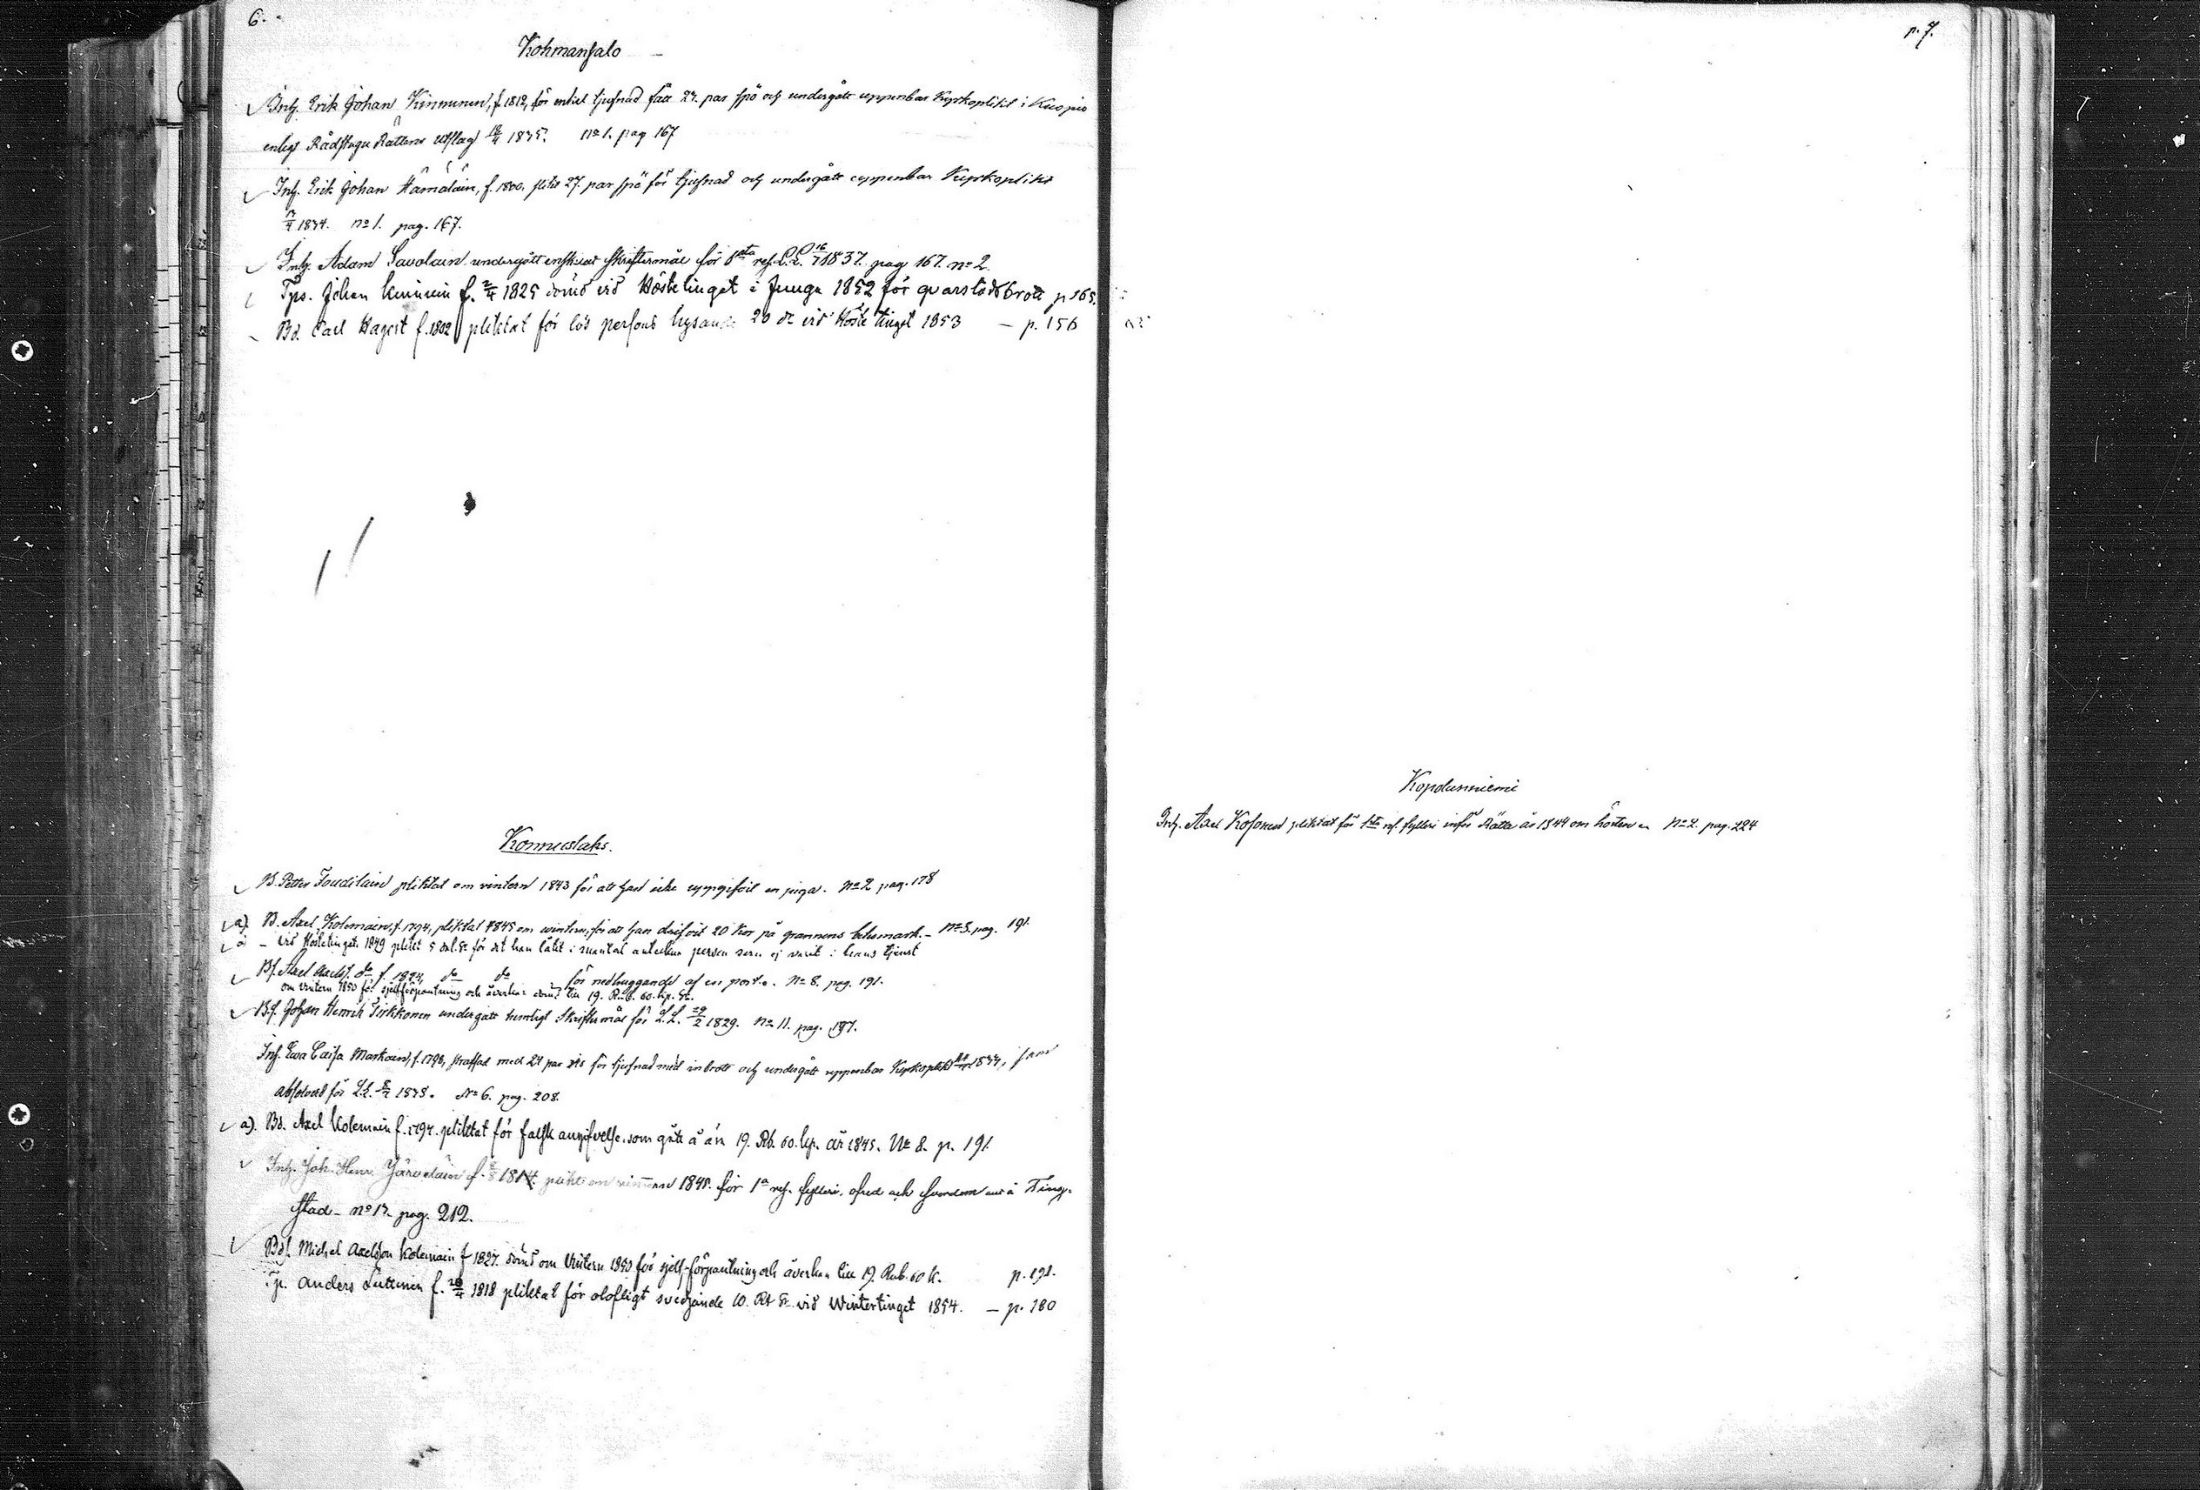 6.
Kohmansalo
Inh. Erik Johan Kinnunen, f. 1812, för enkel tjufnad fått 24. par spö och undergått uppenbar Kyrkoplikt i Kuopio
enligt Rådstugu Rättens utslag 1835. no 1. pag 167
Inh. Erik Johan Hämäläin, f. 1800. slitit 27. par spö för tjufnad och undergått uppenbar Kyrkoplikt
1834. no 1. pag. 167.
Inh. Adam Savolain undergått enskildt skriftermål för 1sta res. L.L. 1837. pag 167. no 2.
Tps. Johan f. 2/4 1825 dömd vid Hösttinget i Junga 1852 för qvarstadsbrott p 165.
Bd. Carl Hagert f. 1802 pliktat för lös persons hysande 20 vid Hösttinget 1853 – p. 156
Konnuslaks.
B. Petter Toudilain pliktat om vintern 1843 för att han icke uppgifvit en piga. No 2 pag. 178
a). B. Axel Kolemain, f. 1794, pliktat 1845 om wintern, för att han drifvit 20 kor på grannens betesmark. – No 8. pag. 191.
a – Vid Hösttinget 1849 för det han låtit i mantal anteckna person som ej varit i hans tjenst
Bf. Axel do f. 1824, do do för nedhuggande af en port. No 8. pag. 191.
om Vintern 1850 för sjelfförpantning och åverkan dömd till 19. Rub. 60. kp. Sr.
Bf. Johan Henrik Tirkkonen undergått hemligt Skriftermål för L.L. 29/2 1829. No 11. pag. 197.
Inh. Ewa Caisa Markain, f. 1798, straffad med 24 par ris för tjufnad med inbrott och undergått uppenbar Kyrkoplikt 1834,
absolverad för L.L. 1838. No 6. pag. 208.
a). Bd. Axel Kolemain f. 1794. pliktat för falsk angifvelse. som 19. Rb. 60. kp. år 1845. No 8. p. 191
Inh. Joh. Henr. Järveläin f. 1814. om 1845. för 1a res. fylleri, ofred och svordom å Ting-
stad – no 13. pag. 212.
Bdf. Michel Axelsson Kolemain f 1827. dömd om Vintern 1850 för sjelf-förpantning och åverkan till 19. Rub. 60 k. p. 191.
Tp. Anders f. 1818 pliktat för olofligt svedjande 10. Rb Sr. vid Wintertinget 1854. – p. 180
p. 7.
Kopolanniemi
Inh. Axel Kosonen pliktat för 1sta res. fylleri inför Rätta år 1844 om hösten No 2. pag. 224